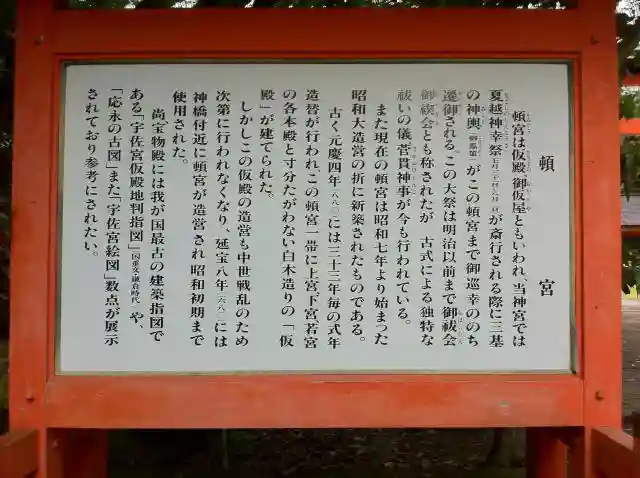 頓宮
頓宮は仮殿、御仮屋ともいわれ、当神宮では
夏越神幸祭が斎行される際に三基
の神輿がこの頓宮まで御巡幸ののち
遷御される。この大祭は明治以前まで御祓会
御禊会とも称されたが 古式による独特な
祓いの儀菅貫神事が今も行われている。
また現在の頓宮は昭和七年より始まった
昭和大造営の折に新築されたものである。
古く元慶四年(八八〇)には三十三年毎の式年
造替が行われこの頓宮一帯に上宮下宮若宮
の各本殿と寸分たがわない白木造りの「仮
殿」が建てられた。
しかしこの仮殿の造営も中世戦乱のため
次第に行われなくなり、延宝八年(一六八〇)には
神橋付近に頓宮が造営され 昭和初期まで
使用された。
尚宝物殿には我が国最古の建築指図で
ある「宇佐宮仮殿地判指図」(国重文・鎌倉時代)や、
「応永の古図」また「宇佐宮絵図」数点が展示
されており参考にされたい。